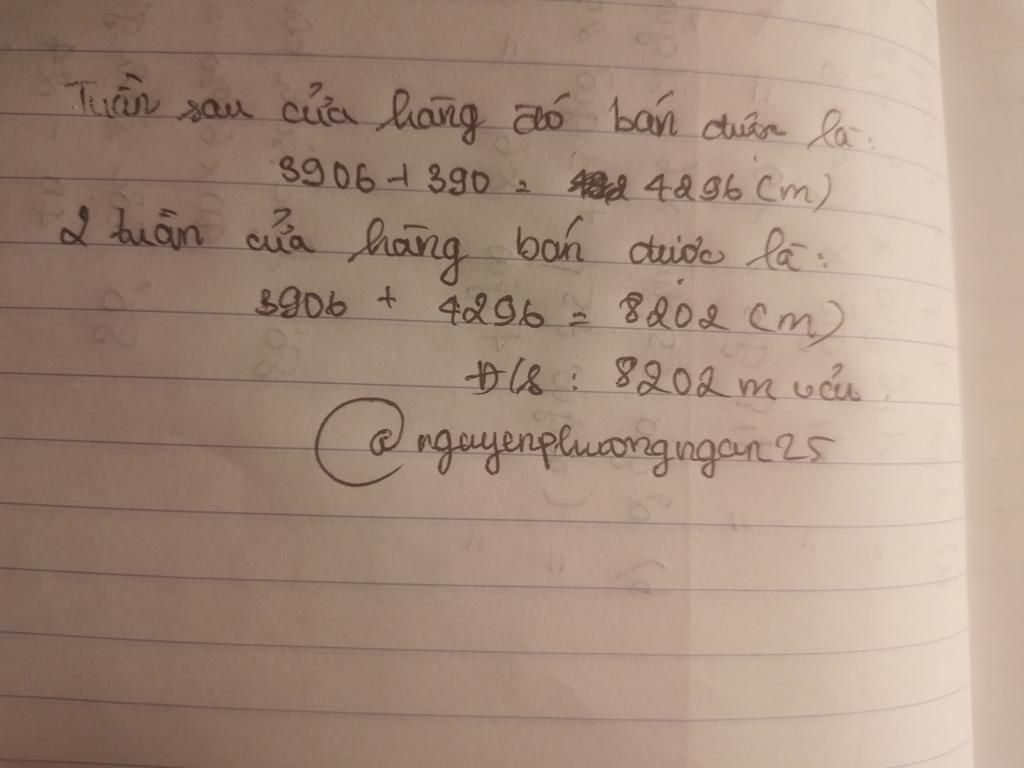 Tuần sau cửa hàng đó bán được là:
3906 + 390 = 4296 (m)
2 tuần cửa hàng bán được là:
3906 + 4296 = 8202 (m)
Đ/S : 8202 m vải.
@nguyenphuongngan25